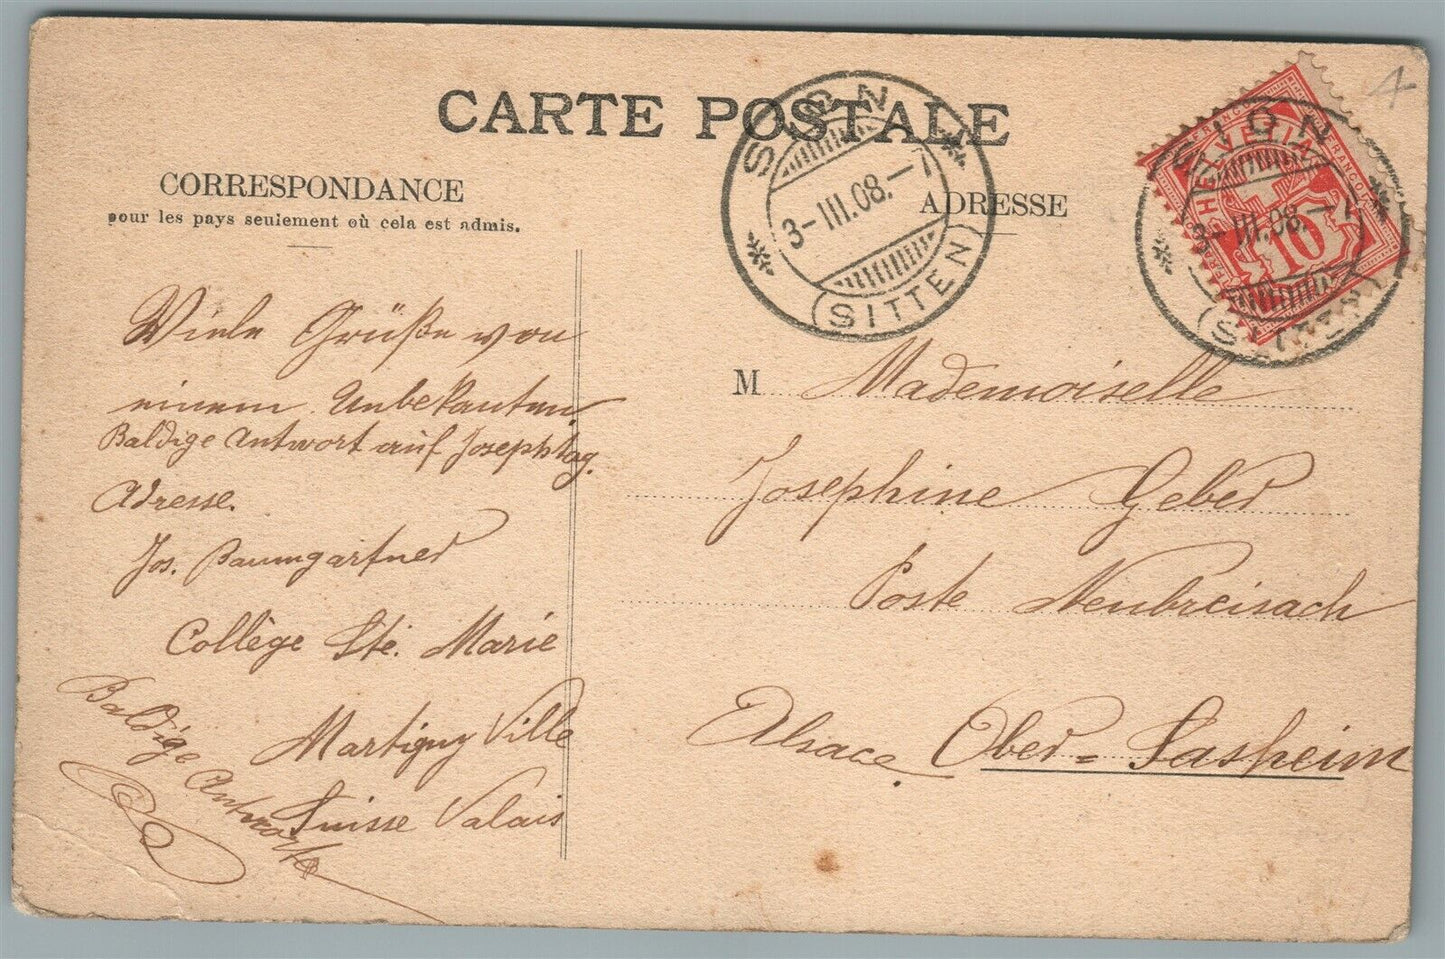 CARTE POSTALE
CORRESPONDANCE
pour les pays seulement où cela est admis.
ADRESSE
SION
3-III.08.-7
(SITTEN)
SION
3-III.08.-7
(SITTEN)
FRANCO
HELVETIA
10
4
Viele Grüße von
einem Unbekannten
Baldige Antwort auf Josephstag.
Adresse.
Jos. Baumgartner
Collège Ste. Marie
Martigny Ville
Suisse Valais
Baldige Antworte
M Mademoiselle
Josephine Geber
Poste Neubreisach
Alsace. Ober=Sasheim